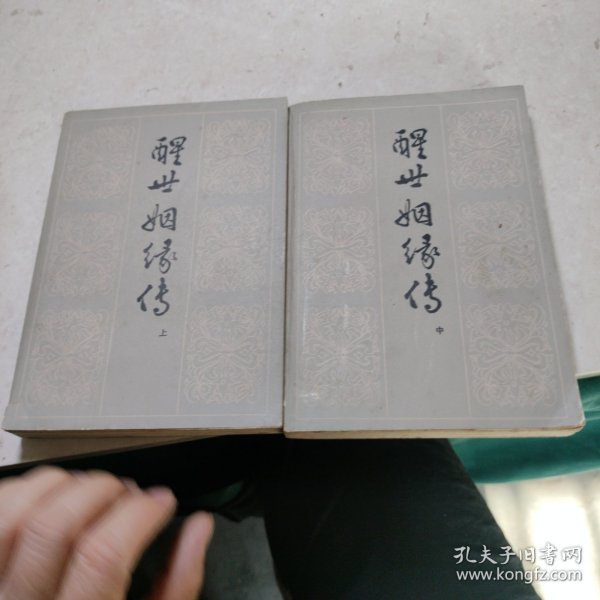 醒世姻缘传
上
醒世姻缘传
中
孔夫子旧书网
www.kongfz.com